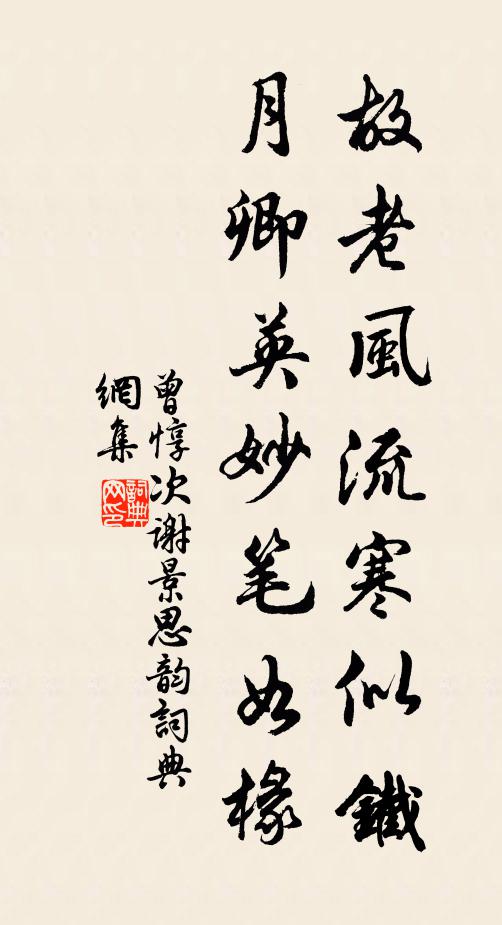 故老風流寒似鐵
月卿英妙笔如椽
曾惇次谢景思韵詞典
網集
詞典
网印